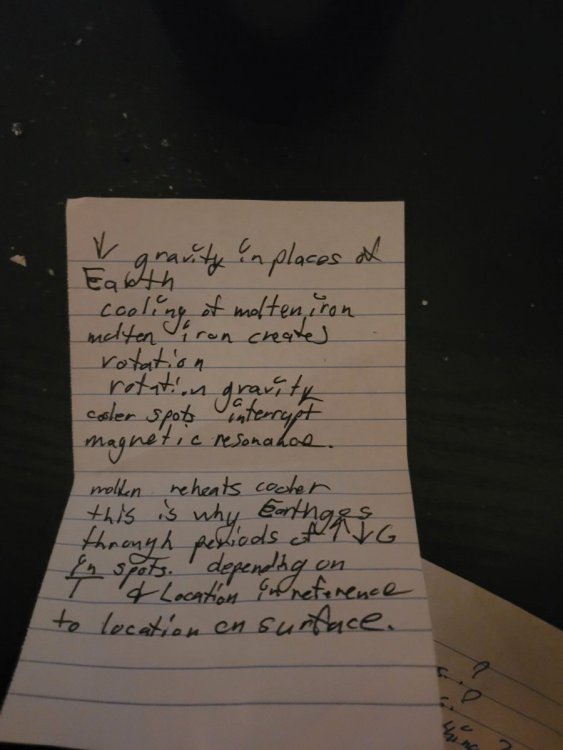 ↓ gravity in places of
Earth
cooling of molten iron
molten iron creates
rotation
rotation gravity
cooler spots interrupt
magnetic resonance.
molten reheats cooler
this is why Earth goes
through periods of ↑↓G
in spots. depending on
T & Location in reference
to location on surface.
?
?
?